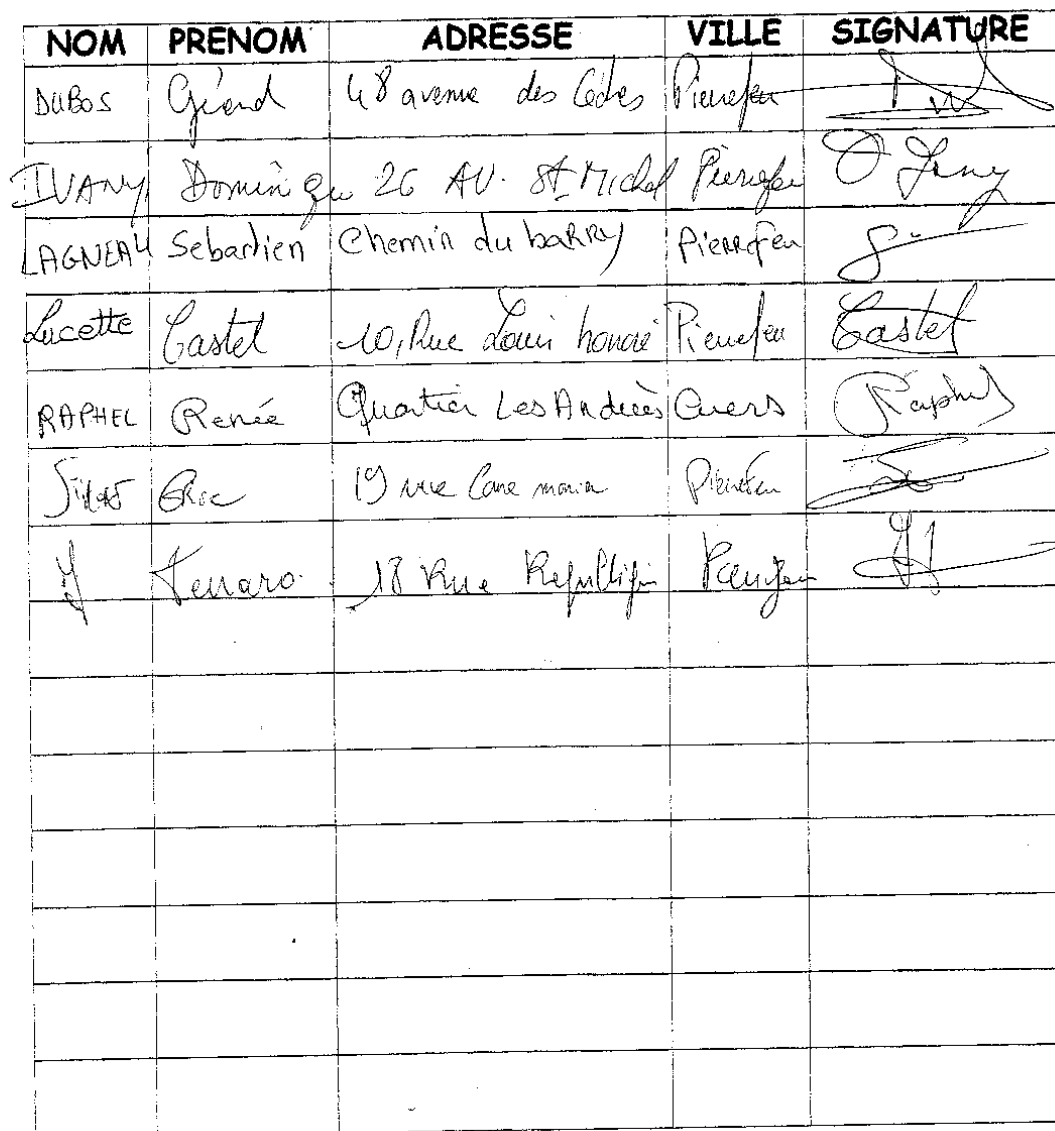 NOM PRENOM ADRESSE VILLE SIGNATURE
DUBOS Gérard 48 avenue des Cèdres Pierrefeu
IVANY Dominique 26 AV. St Michel Pierrefeu
LAGNEAU Sebastien Chemin du baRRy PierreFeu
Lucette Castel 10, Rue Louis honoré Pierrefeu Castel
RAPHEL Renée Quartier Les Andrées Cuers Raphel
Eric 19 rue Pierrefeu
18 Rue République Pierrefeu